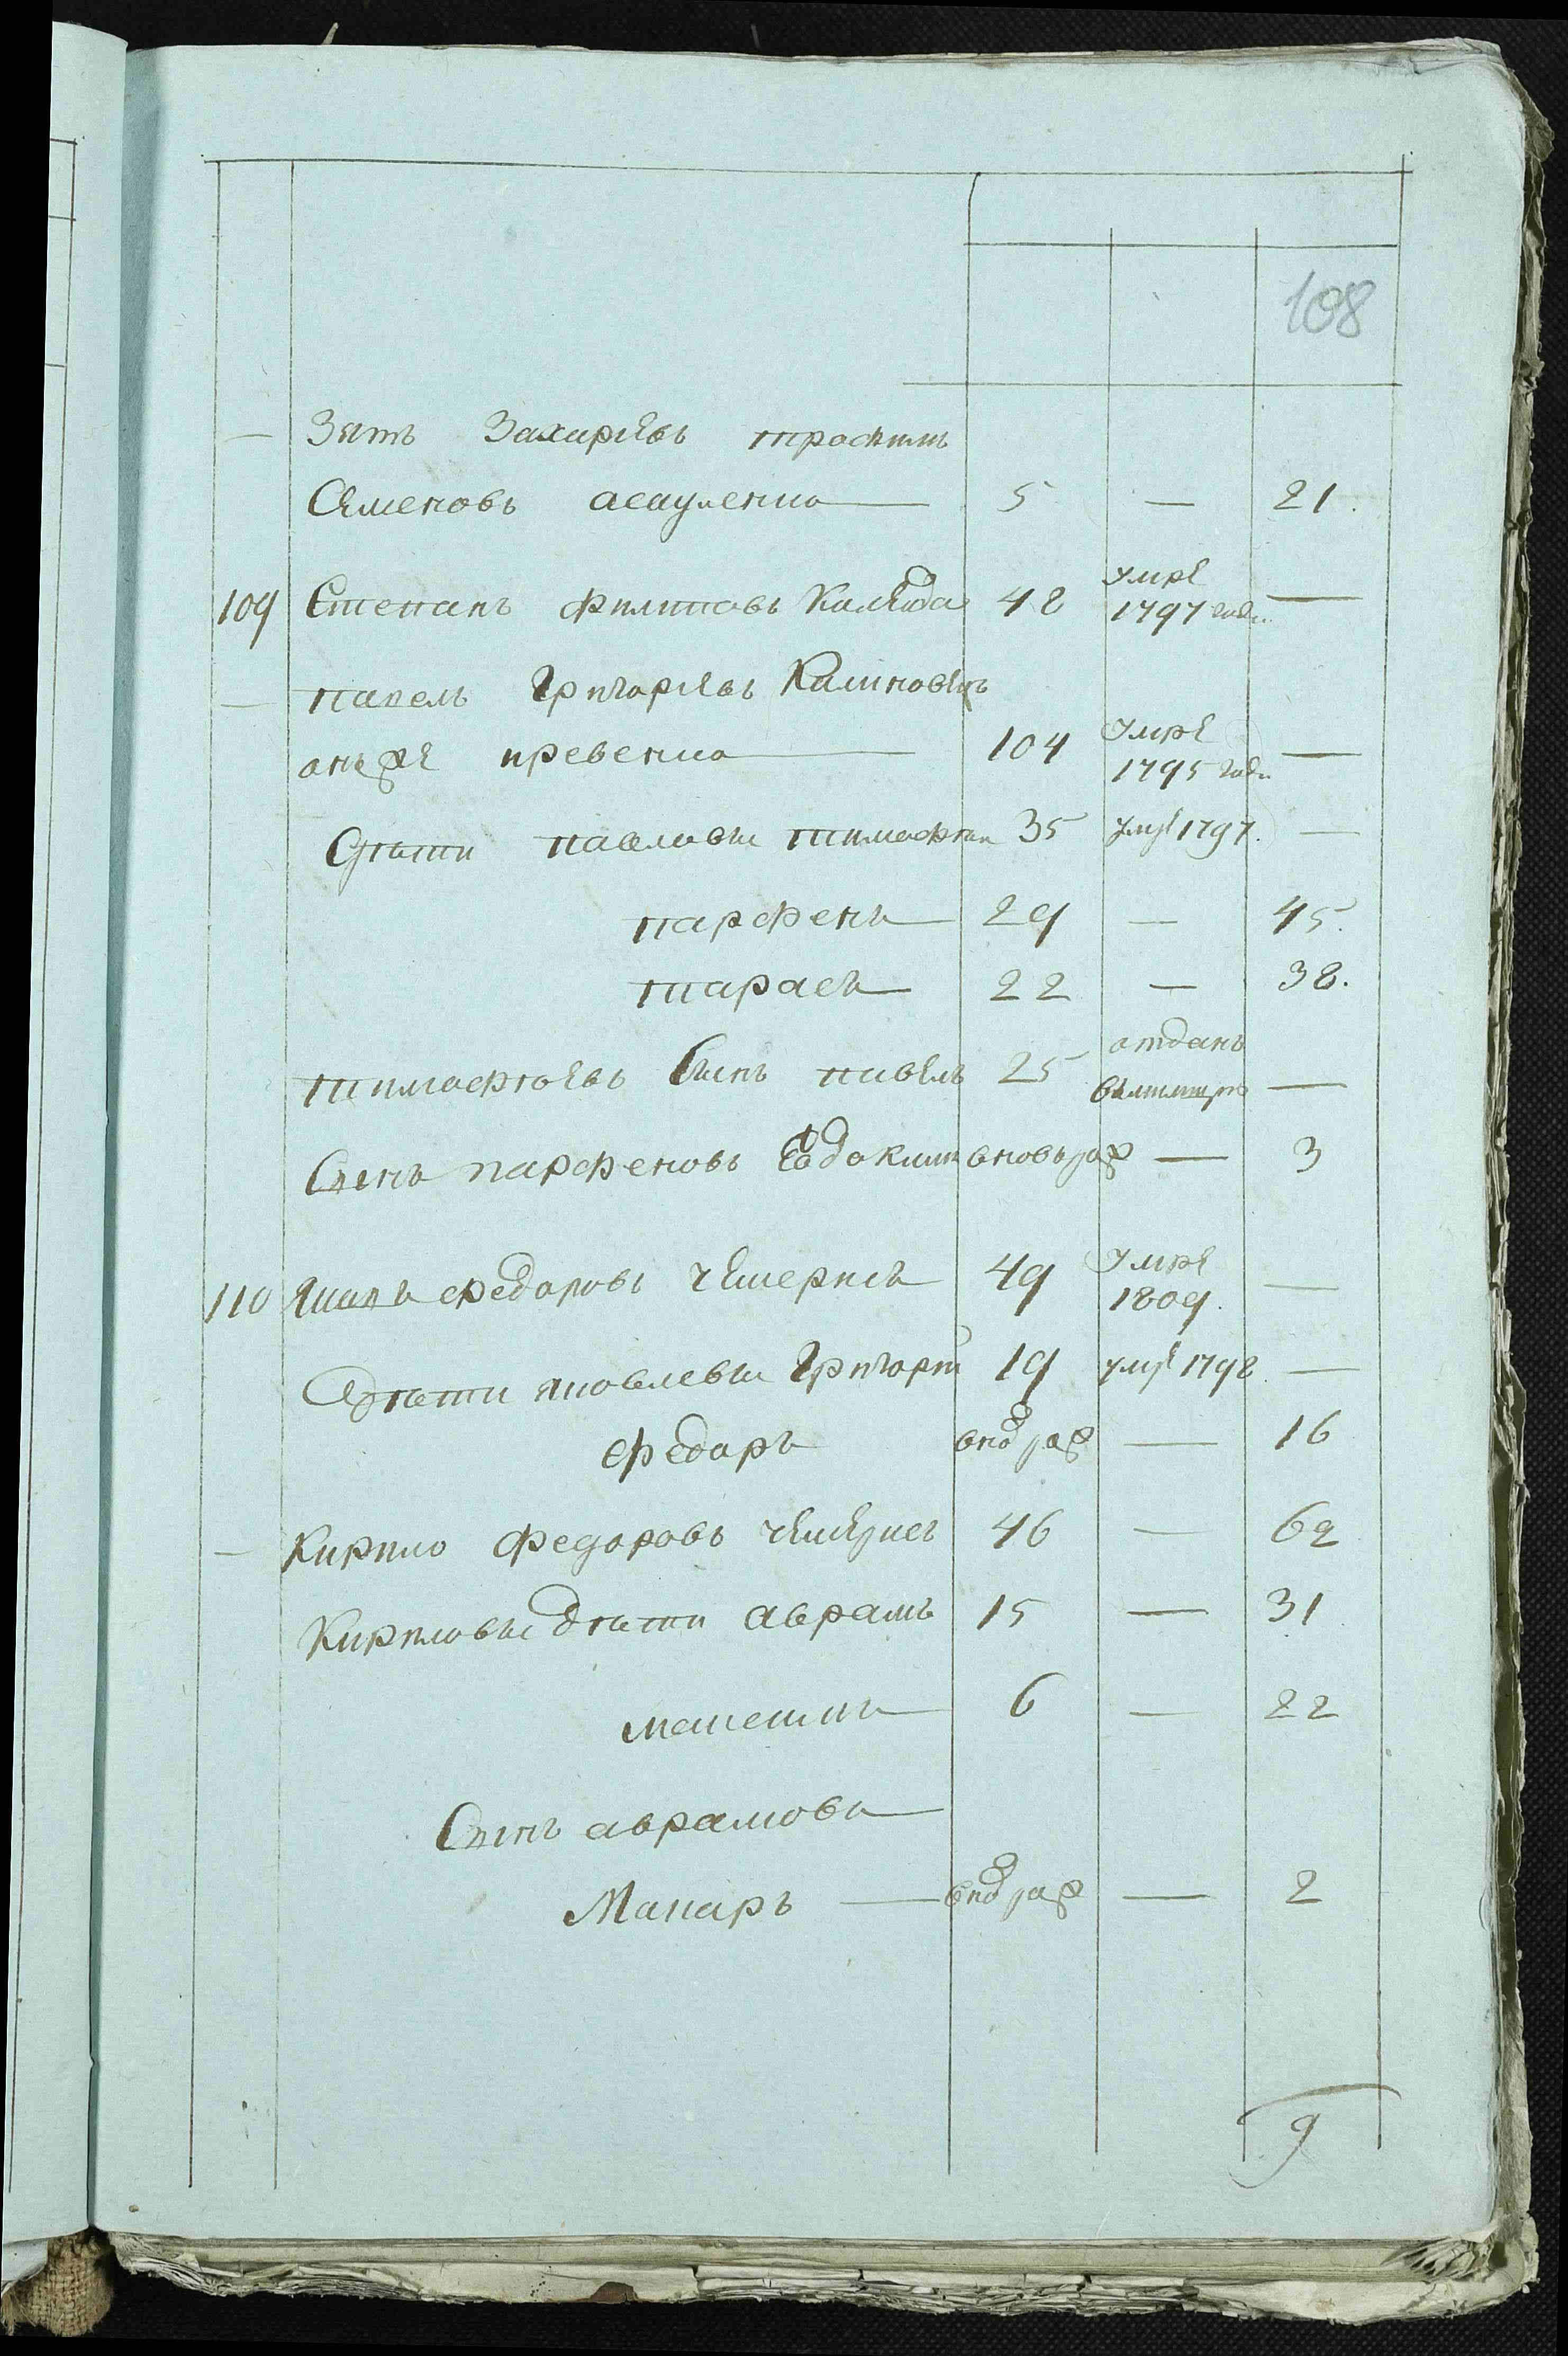 108
— Зять Захарьевъ трофимъ
Семеновъ асауленко — 5 — 21.
109 Степанъ филиповъ Календа 48 умре 1797 года —
— павелъ Григорьевъ Калиновъ
онже кревенко — 104 Умре 1795 года —
Дѣти павловы тимофей 35 умре 1797. —
парфенъ — 29 — 45.
тарасъ — 22 — 38.
тимофѣевъ Сынъ павелъ 25 отданъ —
Сынъ парфеновъ Евдокимъ вновь рож — 3
110 Яковъ федоровъ чемерисъ 49 Умре 1809. —
Дѣти яковлевы Григорій 19 умре 1798. —
федоръ вно рож — 16
— Кирило федоровъ чемерисъ 46 — 62
Кириловы дѣти аврамъ 15 — 31
моисей — 6 — 22
Сынъ аврамовъ —
Макаръ — вно рож — 2
9